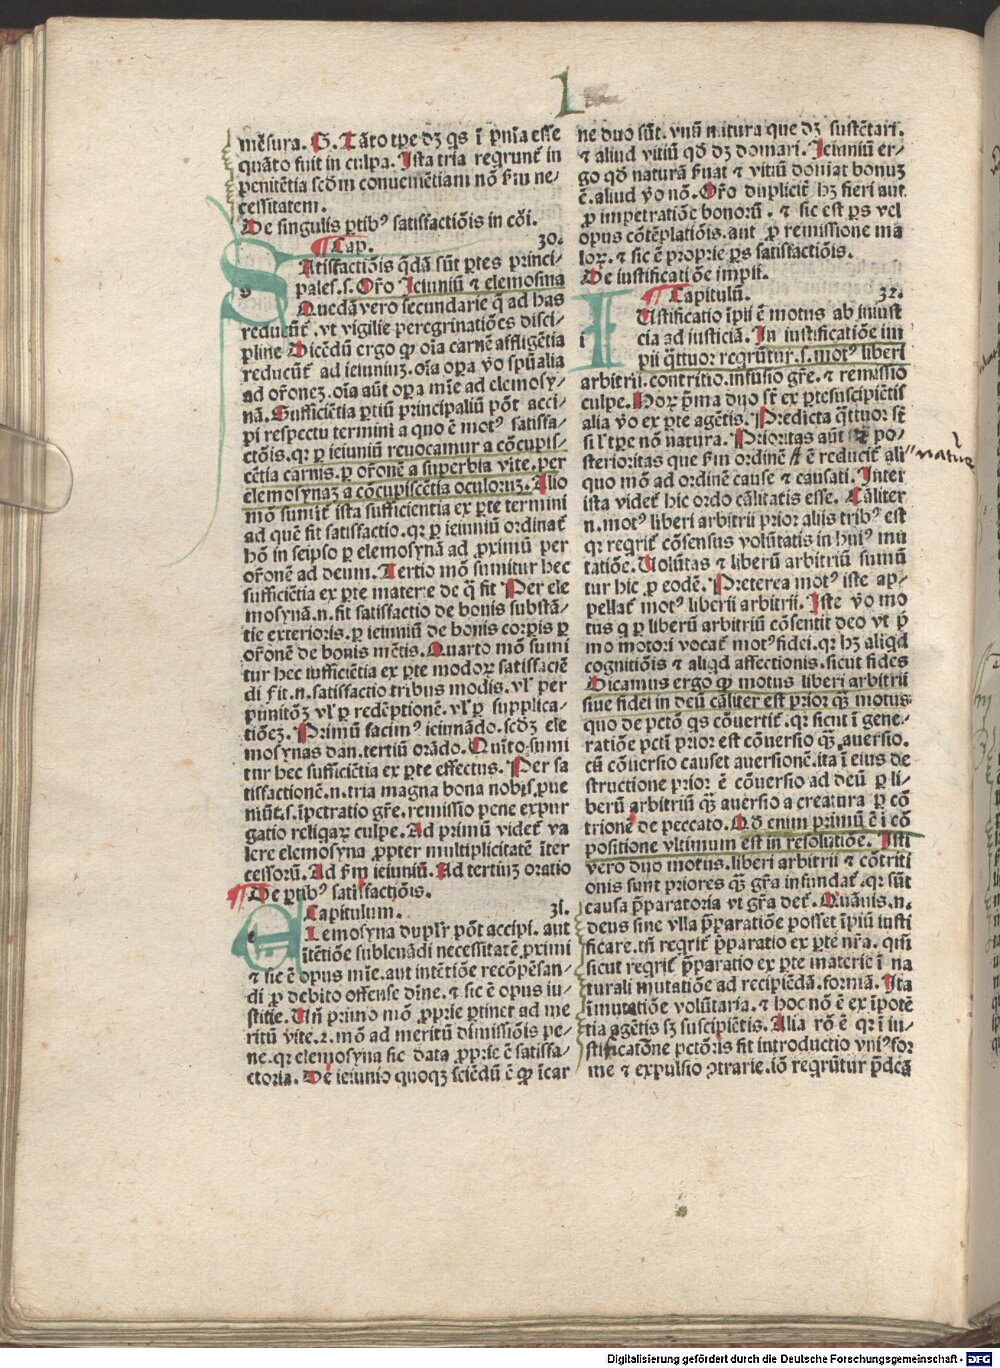 L
mēsura. S. Tāto tp̄e dꝫ qs ī pn̄ia eſſe
quāto fuit in culpa. Iſta tria reqrunt̄ in
penitētia ſcd̄m conuenietiam nō ſm̄ ne⸗
ceſſitatem.
De ſingulis ptibꝰ ſatiſfactiōis in cōi.
¶ Cap. 30.
Atiſfactiōis q̄dā ſūt ptes princi⸗
pales. ſ. Or̄o Ieiuniū ⁊ elemoſina
Quedā vero ſecundarie q̄ ad has
reducūt̄. vt vigilie peregrinatiōes diſci⸗
pline Dicēdū ergo ꝙ oīa carnē affligētia
reducūt̄ ad ieiuniuꝫ. oīa opa v̄o ſpūalia
ad or̄oneꝫ. oīa aūt opa mīe ad elemoſy⸗
nā. Sufficiētia ptiū principaliū pōt acci⸗
pi reſpectu termini a quo ē motꝰ ſatiſfa⸗
ctōis. qꝛ ꝑ ieiuniū reuocamur a cōcupiſ⸗
cētia carnis. ꝑ or̄onē a ſuperbia vite. per
elemoſynaꝫ a cōcupiſcētia oculoruꝫ. Alio
mō ſumit̄ iſta ſufficientia ex ꝑte termini
ad quē fit ſatiſfactio. qꝛ ꝑ ieiuniū ordinat̄
hō in ſeipſo ꝑ elemoſynā ad ꝓximū per
or̄onē ad deum. Tertio mō ſumitur hec
ſufficiētia ex ꝑte matere de q̄ fit Per ele
moſynā. n. fit ſatiſfactio de bonis ſubſtā⸗
tie exterioris. ꝑ ieiuniū de bonis corꝑis ꝑ
or̄onē de bonis mētis. Quarto mō ſumi
tur hec ſufficiētia ex ꝑte modoꝝ ſatiſfaciē
di fit. n. ſatiſfactio tribus modis. vl̄ per
punitōꝫ vl̄ ꝑ redēptionē. vl̄ ꝑ ſupplica⸗
tiōeꝫ. Primū facimꝰ ieiunādo. ſcd̄ꝫ ele
moſynas dan. tertiū orādo. Quīto ſumi
tur hec ſufficiētia ex ꝑte effectus. Per ſa
tiſfactionē. n. tria magna bona nobis ꝓue
niūt. ſ. īpetratio gr̄e. remiſſio pene expur
gatio religaꝝ culpe. Ad primū videt̄ va
lere elemoſyna ꝓpter multiplicitatē īter
ceſſorū. Ad ſm̄ ieiuniū. Ad tertiuꝫ oratio
¶ De ptibꝰ ſatiſfactiōis.
Capitulum. 31.
Lemoſyna dupl̄r pōt accipi. aut
ītētiōe ſubleuādi neceſſitatē ꝓximi
⁊ ſic ē opus mīe. aut intētiōe recōpēſan⸗
di ꝓ debito offenſe dīne. ⁊ ſic ē opus iu⸗
ſtitie. Uñ primo mō ꝓprie ꝑtinet ad me
ritū vite. 2. mō ad meritū dimiſſiōis pe⸗
ne. qꝛ elemoſyna ſic data ꝓprie ē ſatiſfa⸗
ctoria. De ieiunio quoqꝫ ſciēdū ē ꝙ īcar
ne duo ſūt. vnū natura que dꝫ ſuſtētari.
⁊ aliud vitiū qd̄ dꝫ domari. Ieiuniū er⸗
go qd̄ naturā ſ̄uat ⁊ vitiū domat bonuꝫ
ē. aliud v̄o nō. Or̄o duplicit̄ hꝫ fieri aut
ꝓ impetratiōe bonorū. ⁊ ſic eſt ꝑs vel
opus cōtēplatiōis. aut ꝓ remiſſione ma
loꝝ. ⁊ ſic ē proprie ꝑs ſatiſfactiōis.
De iuſtificatiōe impii.
¶ Capitulū. 32.
i
Uſtificatio īpii ē motus ab iniuſt
cia ad iuſticiā. In iuſtificatiōe im
pii q̄ttuor reqrūtur. ſ. motꝰ liberi
arbitrii. contritio. infuſio gr̄e. ⁊ remiſſio
culpe. Hoꝝ p̄ma duo ſt̄ ex ꝑte ſuſcipiētis
alia v̄o ex ꝑte agētis. Predicta q̄ttuor ſt̄
ſil̄ tp̄e nō natura. Prioritas aūt ⁊ po⸗
ſterioritas que ſm̄ ordinē ē reducit̄ ali
natur
quo mō ad ordinē cauſe ⁊ cauſati. Inter
iſta videt̄ hic ordo cālitatis eſſe. Cāliter
n. motꝰ liberi arbitrii prior aliis tribꝰ eſt
qꝛ reqrit̄ cōſenſus volūtatis in huiꝰ mu
tatiōe. Uolūtas ⁊ liberū arbitriū ſumū
tur hic ꝓ eodē. Preterea motꝰ iſte ap⸗
pellat̄ motꝰ liberii arbitrii. Iſte v̄o mo
tus q ꝑ liberū arbitriū cōſentit deo vt p̄
mo motori vocat̄ motꝰ fidei. qꝛ hꝫ aliqd
cognitiōis ⁊ aliqd affectionis. ſicut fides
Dicamus ergo ꝙ motus liberi arbitrii
ſiue fidei in deū cāliter eſt prior qꝫ motus
quo de pctō qs cōuertit̄. qꝛ ſicut ī gene⸗
ratiōe pcti prior eſt cōuerſio qꝫ auerſio.
cū cōuerſio cauſet auerſionē. ita ī eius de
ſtructione prior ē cōuerſio ad deū ꝑ li⸗
berū arbitriū qꝫ auerſio a creatura ꝑ cō
tritionē de peccato. Qd̄ enim primū ē ī cō
poſitione vltimum eſt in reſolutiōe. Iſti
vero duo motus. liberi arbitrii ⁊ cōtriti
onis ſunt priores qꝫ gr̄a infundat̄. qꝛ ſūt
cauſa p̄paratoria vt gr̄a det̄. Quāuis. n.
deus ſine vlla p̄paratiōe poſſet īpiū iuſti
ficare. tñ reqrit̄ p̄paratio ex ꝑte nr̄a. qm̄
ſicut reqrit̄ p̄paratio ex ꝑte materie ī na
turali mutatiōe ad recipiēdā formā. Ita
īmutatiōe volūtaria. ⁊ hoc nō ē ex īpotē
tia agētis ſꝫ ſuſcipiētis. Alia rō ē qꝛ ī iu⸗
ſtificatōne pctōris fit introductio vniꝰ for
me ⁊ expulſio ꝯtrarie. iō reqrūtur p̄dcā
Digitalisierung gefördert durch die Deutsche Forschungsgemeinschaft - DFG